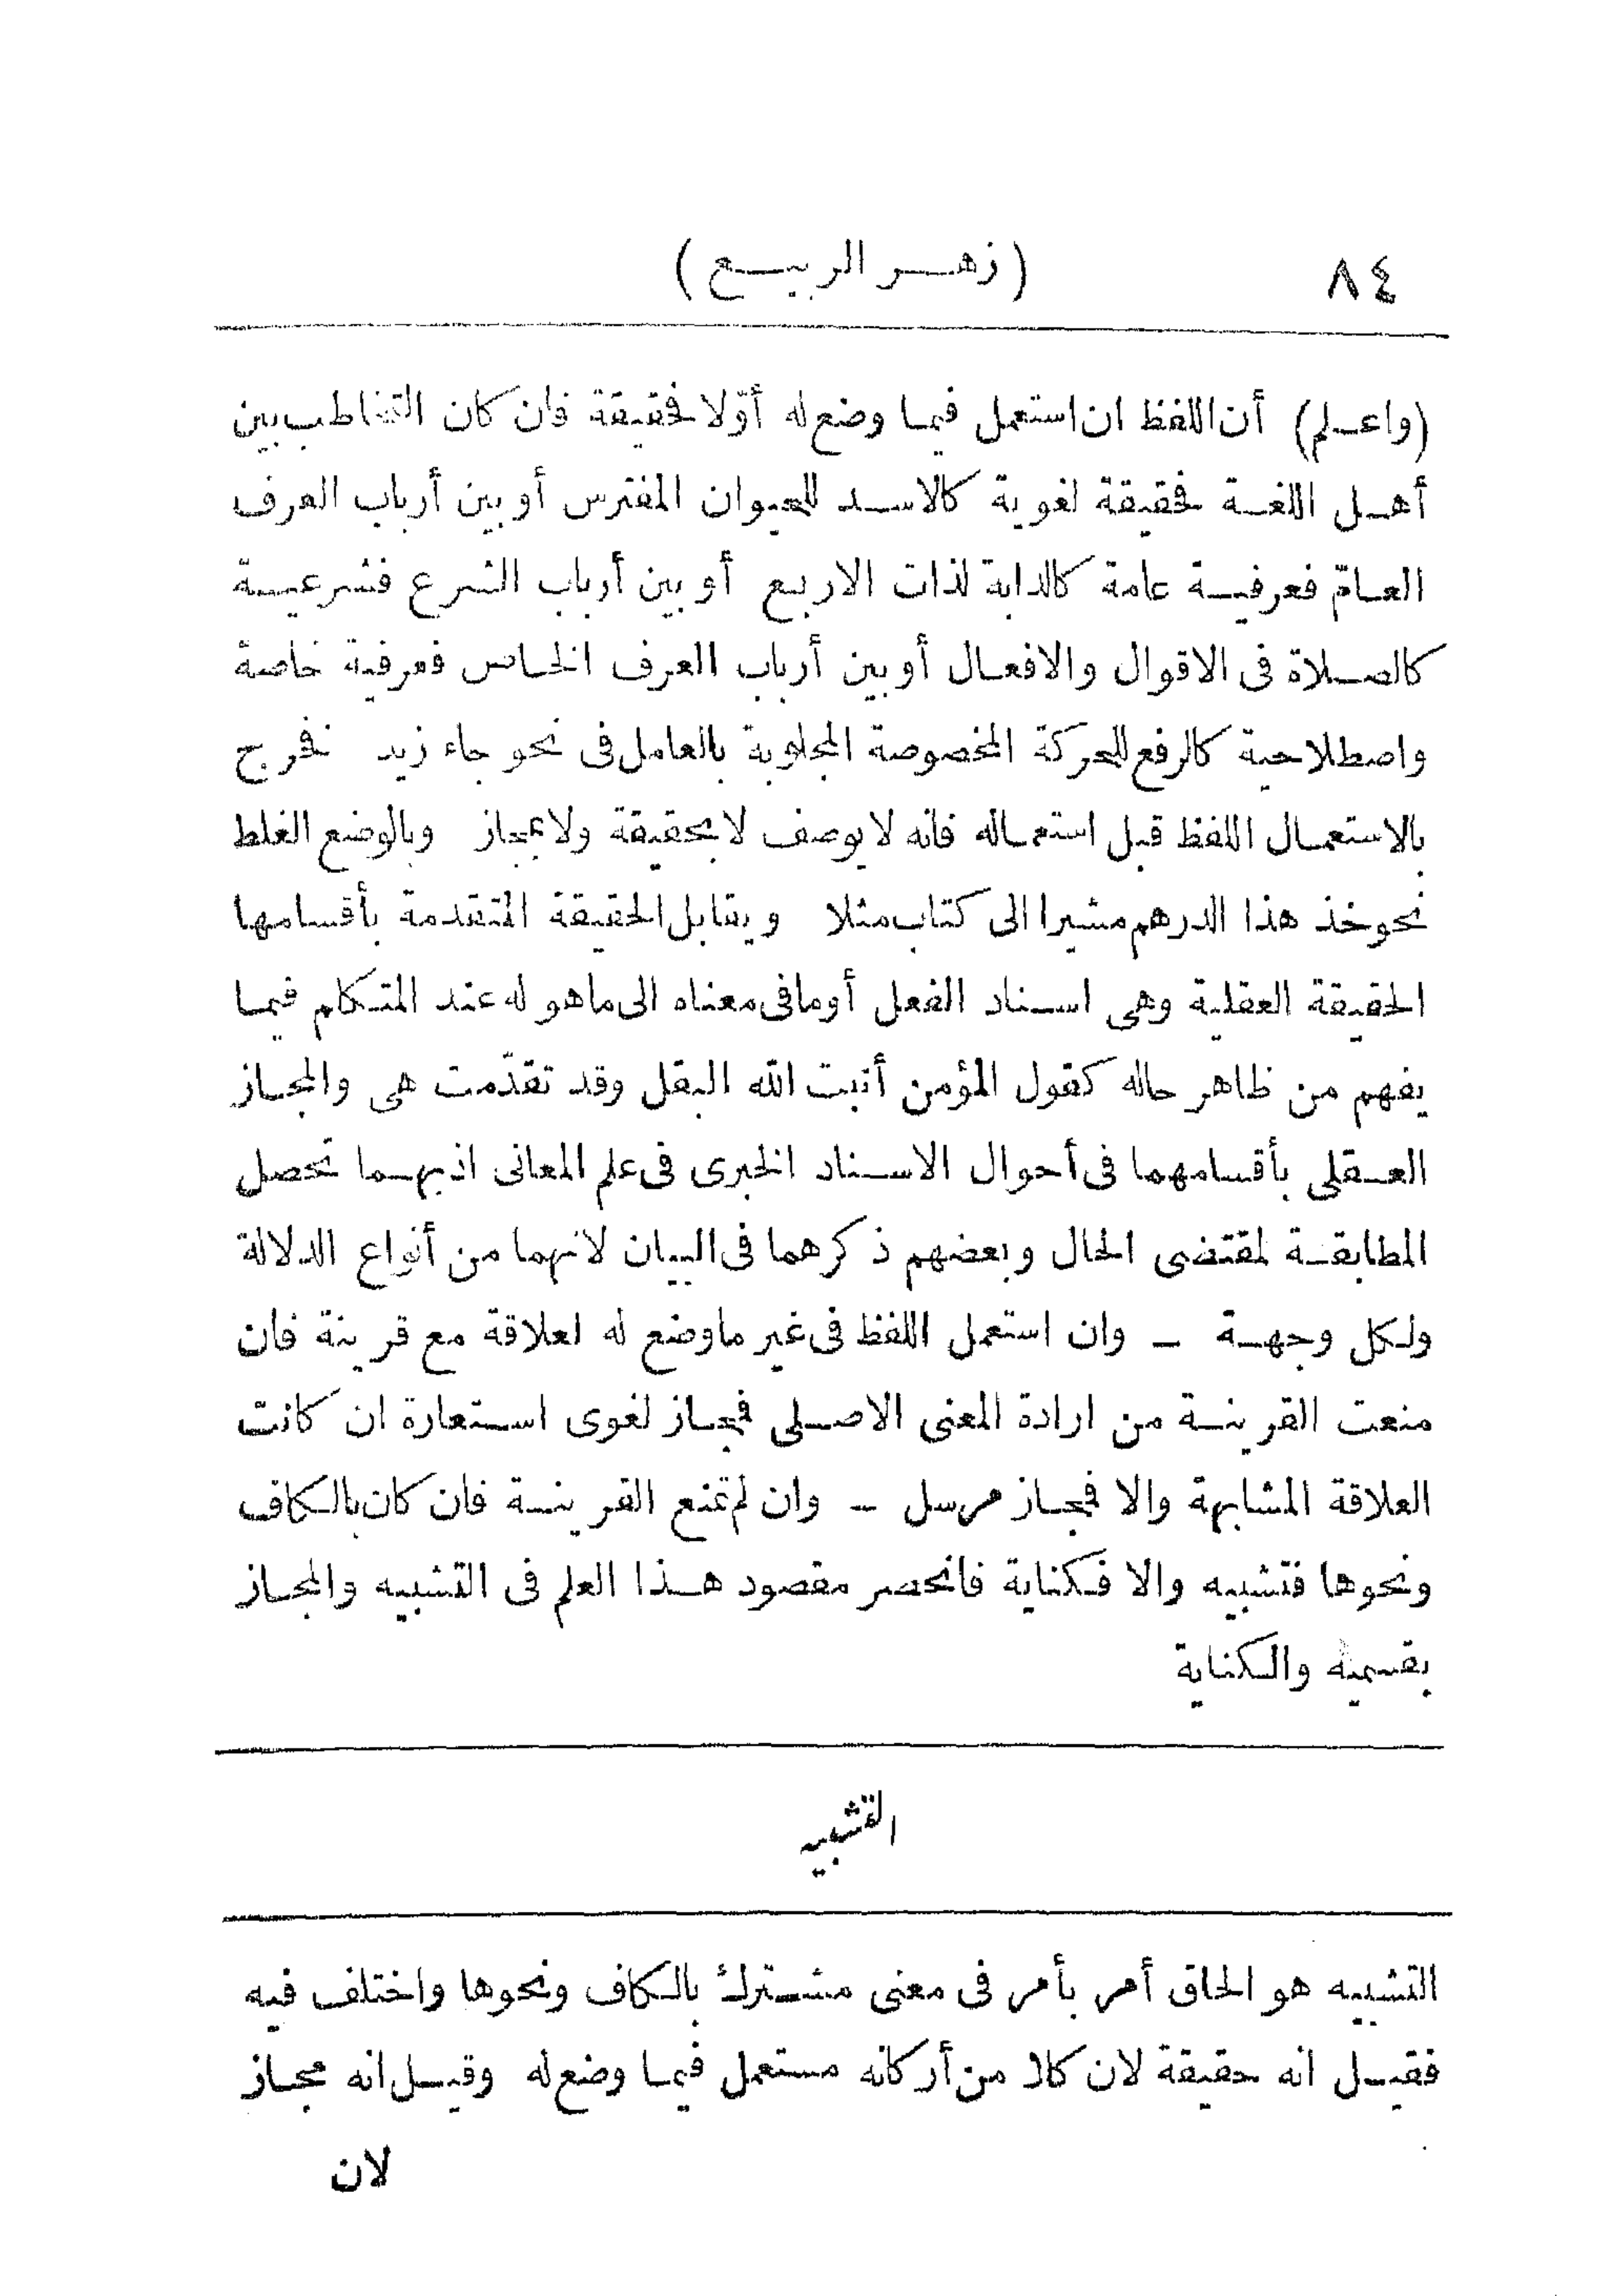 ٨٤
(زهر الربيع)
(واعلم) أن اللفظ ان استعمل فيما وضع له أوّلا فحقيقة فان كان التخاطب بين
أهل اللغة فحقيقة لغوية كالاسد للحيوان المفترس أو بين أرباب العرف
العامّ فعرفية عامة كالدابة لذات الاربع أو بين أرباب الشرع فشرعية
كالصلاة فى الاقوال والافعال أو بين أرباب العرف الخاص فعرفية خاصة
واصطلاحية كالرفع للحركة المخصوصة المجلوبة بالعامل فى نحو جاء زيد فخرج
بالاستعمال اللفظ قبل استعماله فانه لا يوصف لا بحقيقة ولا بمجاز وبالوضع الغلط
نحو خذ هذا الدرهم مشيرا الى كتاب مثلا ويقابل الحقيقة المتقدمة بأقسامها
الحقيقة العقلية وهى اسناد الفعل أو ما فى معناه الى ما هو له عند المتكلم فيما
يفهم من ظاهر حاله كقول المؤمن أنبت الله البقل وقد تقدّمت هى والمجاز
العقلى بأقسامهما فى أحوال الاسناد الخبرى فى علم المعانى اذ بهما تحصل
المطابقة لمقتضى الحال وبعضهم ذكرهما فى البيان لانهما من أنواع الدلالة
ولكل وجهة ـ وان استعمل اللفظ فى غير ما وضع له لعلاقة مع قرينة فان
منعت القرينة من ارادة المعنى الاصلى فمجاز لغوى استعارة ان كانت
العلاقة المشابهة والا فمجاز مرسل ـ وان لم تمنع القرينة فان كان بالكاف
ونحوها فتشبيه والا فكناية فانحصر مقصود هذا العلم فى التشبيه والمجاز
بقسميه والكناية
التشبيه
التشبيه هو الحاق أمر بأمر فى معنى مشترك بالكاف ونحوها واختلف فيه
فقيل انه حقيقة لان كلا من أركانه مستعمل فيما وضع له وقيل انه مجاز
لان